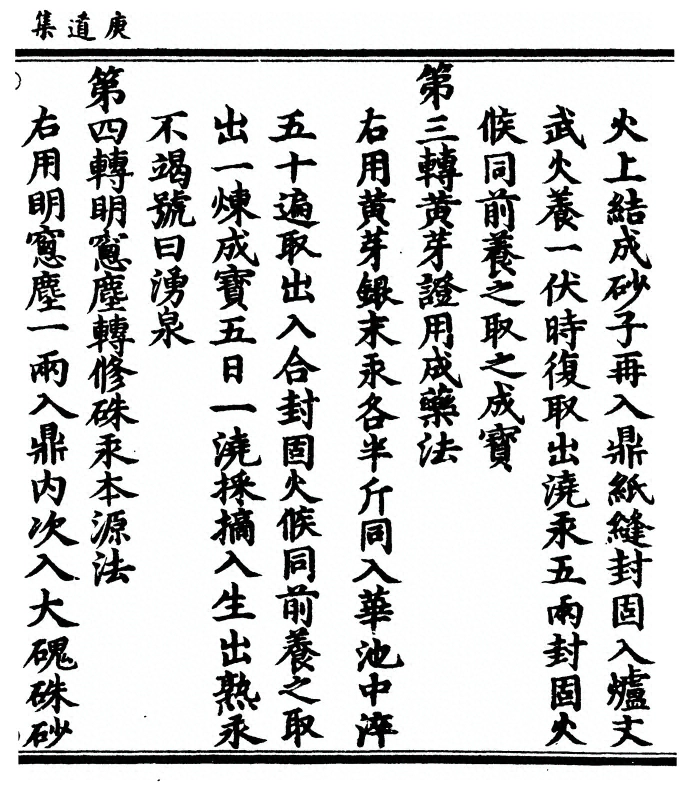 庚道集
火上結成砂子再入鼎紙縫封固入爐文
武火養一伏時復取出澆汞五兩封固火
候同前養之取之成寳
第三轉黃芽證用成藥法
右用黃芽銀末汞各半斤同入華池中淬
五十遍取出入合封固火候同前養之取
出一煉成寳五日一澆採摘入生出熟汞
不竭號曰湧泉
第四轉明窻塵轉修硃汞本源法
右用明窻塵一兩入鼎内次入大磈硃砂